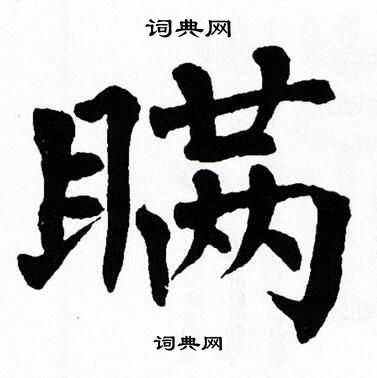 词典网
瞒
词典网